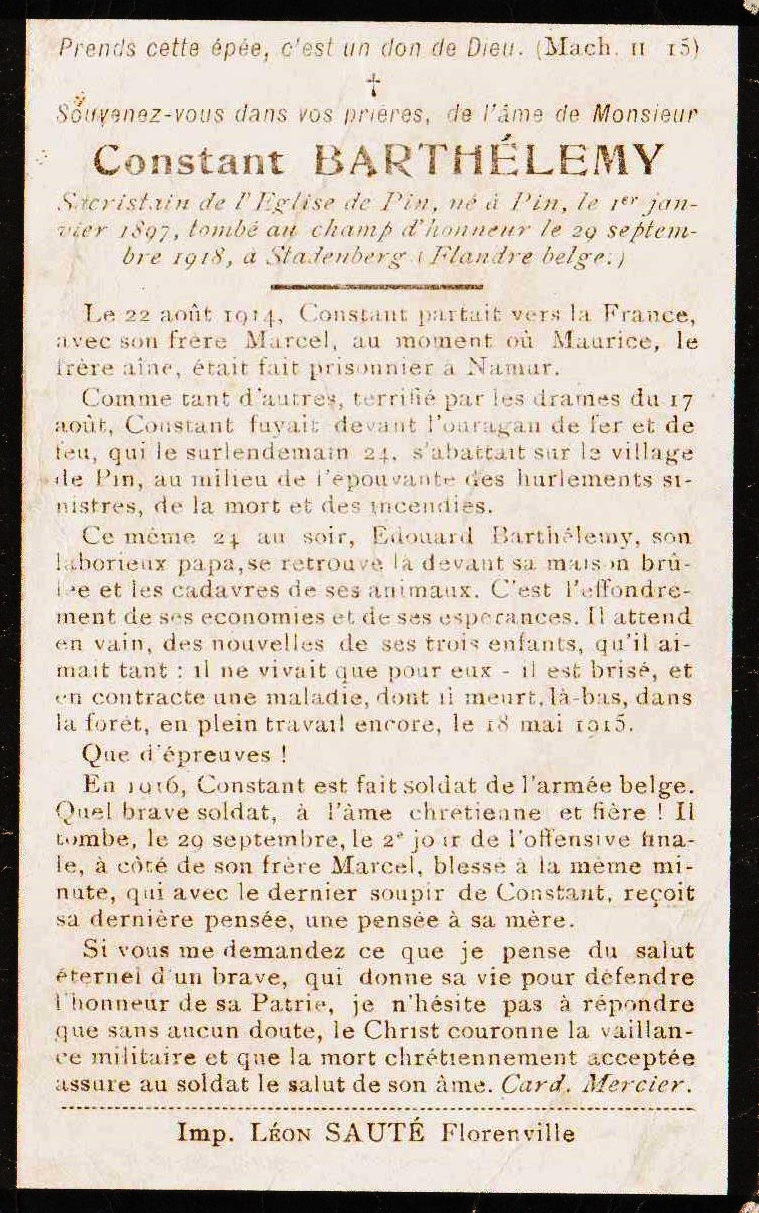 Prends cette épée, c'est un don de Dieu. (Mach. II 15)
†
Souvenez-vous dans vos prières, de l'âme de Monsieur
Constant BARTHÉLEMY
Sacristain de l'Eglise de Pin, né à Pin, le 1er jan-
vier 1897, tombé au champ d'honneur le 29 septem-
bre 1918, à Stadenberg (Flandre belge.)
Le 22 août 1914, Constant partait vers la France,
avec son frère Marcel, au moment où Maurice, le
frère aîné, était fait prisonnier à Namur.
Comme tant d'autres, terrifié par les drames du 17
août, Constant fuyait devant l'ouragan de fer et de
feu, qui le surlendemain 24, s'abattait sur le village
de Pin, au milieu de l'épouvante des hurlements si-
nistres, de la mort et des incendies.
Ce même 24 au soir, Edouard Barthélemy, son
laborieux papa, se retrouve là devant sa maison brû-
lée et les cadavres de ses animaux. C'est l'effondre-
ment de ses economies et de ses esperances. Il attend
en vain, des nouvelles de ses trois enfants, qu'il ai-
mait tant : il ne vivait que pour eux - il est brisé, et
en contracte une maladie, dont il meurt, là-bas, dans
la forêt, en plein travail encore, le 18 mai 1915.
Que d'épreuves !
En 1916, Constant est fait soldat de l'armée belge.
Quel brave soldat, à l'âme chrétienne et fière ! Il
tombe, le 29 septembre, le 2e jour de l'offensive fina-
le, à côté de son frère Marcel, blessé à la même mi-
nute, qui avec le dernier soupir de Constant, reçoit
sa dernière pensée, une pensée à sa mère.
Si vous me demandez ce que je pense du salut
éternel d'un brave, qui donne sa vie pour défendre
l'honneur de sa Patrie, je n'hésite pas à répondre
que sans aucun doute, le Christ couronne la vaillan-
ce militaire et que la mort chrétiennement acceptée
assure au soldat le salut de son âme. Card. Mercier.
Imp. LÉON SAUTÉ Florenville